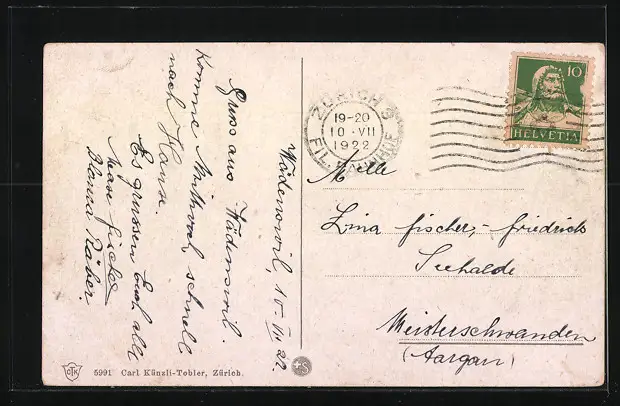 Wädenswil, 10. VII 22.
Gruss aus Wädenswil.
Komme Mittwoch schnell
nach Haus.
Es grüssen Euch alle
Blanca Räber.
ZÜRICH
19-20
10·VII
1922
FIL.
10
HELVETIA
Melle
Lina Fischer,- Friedrich
Seehalde
Meisterschwanden
(Aargau)
5991 Carl Künzli-Tobler, Zürich.